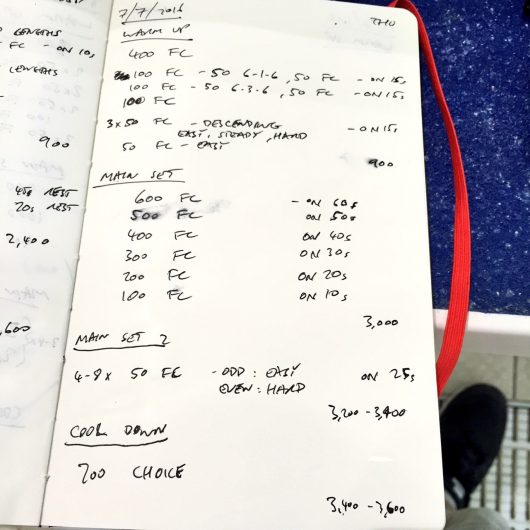 LENGTHS
FC - ON 10s
LENGTHS
900
45s REST
20s REST
2,400
,600
7/7/2016 THU
WARM UP
400 FC
100 FC - 50 6-1-6, 50 FC - ON 15s
100 FC - 50 6-3-6, 50 FC - ON 15s
100 FC
3x50 FC - DESCENDING - ON 15s
EASY, STEADY, HARD
50 FC - EASY
900
MAIN SET
600 FC - ON 60s
500 FC ON 50s
400 FC ON 40s
300 FC ON 30s
200 FC ON 20s
100 FC ON 10s
3,000
MAIN SET 2
4-8x 50 FC - ODD: EASY ON 25s
EVEN: HARD
3,200 - 3,400
COOL DOWN
200 CHOICE
3,400 - 3,600